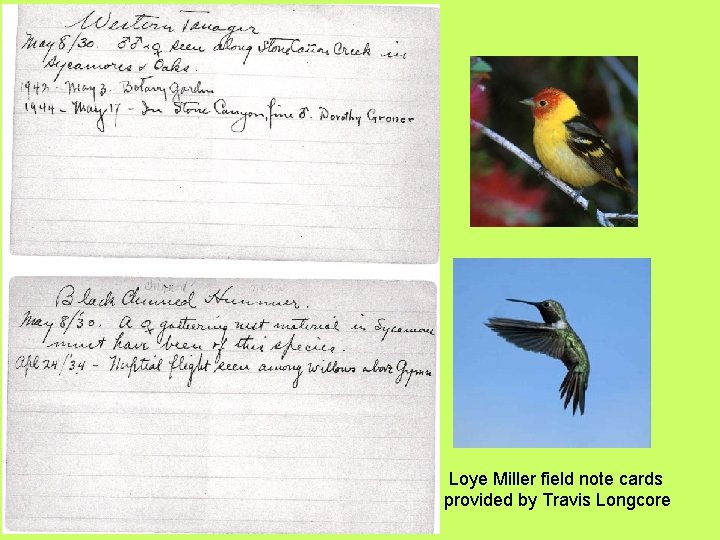 Western Tanager
May 8/30. ♂♂ & ♀ seen along Stone Cañon Creek in
Sycamores & Oaks.
1942 - May 3. Botany Garden
1944 - May 17 - In Stone Canyon, fine ♂. Dorothy Groner
Black Chinned Hummer.
May 8/'30. A ♀ gathering nest material in Sycamore
must have been of this species.
Apl 24/'34 - Nuptial flight seen among willows above Gymn
Loye Miller field note cards
provided by Travis Longcore